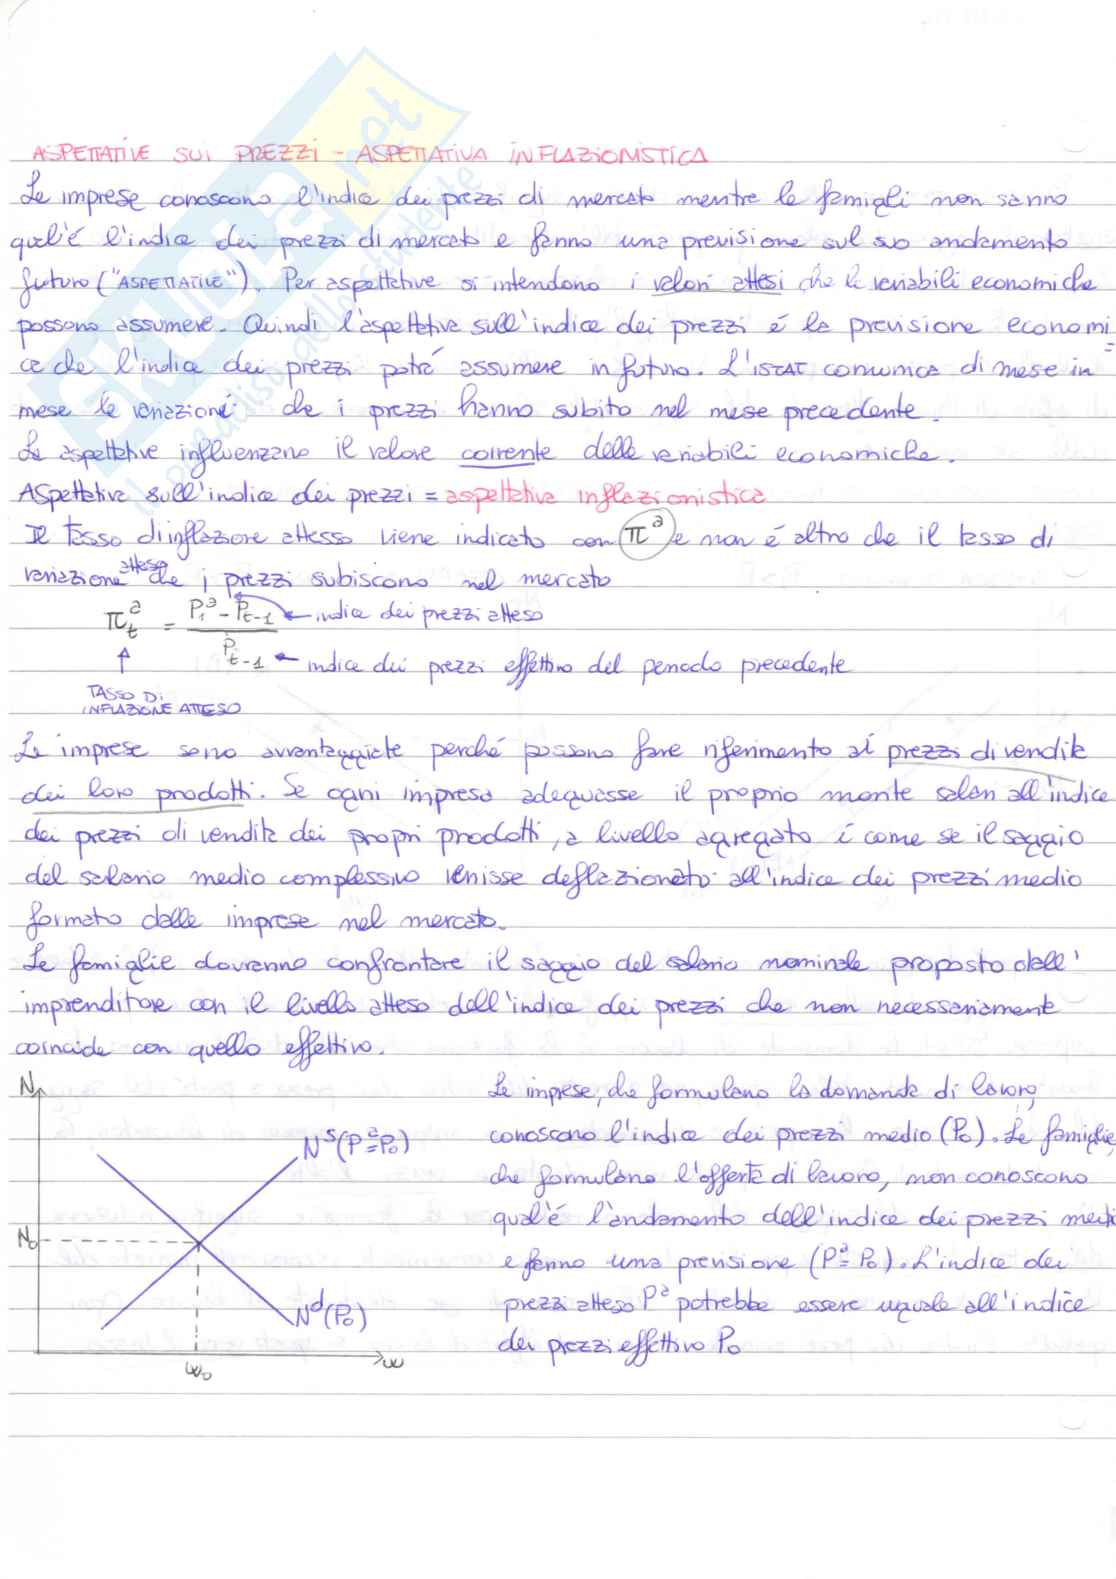 ASPETTATIVE SUI PREZZI - ASPETTATIVA INFLAZIONISTICA
Le imprese conoscono l'indice dei prezzi di mercato mentre le famigli non sanno
qual'é l'indice dei prezzi di mercato e fanno una previsione sul suo andamento
futuro ("ASPETTATIVE"). Per aspettative si intendono i valori attesi che le variabili economiche
possono assumere. Quindi l'aspettativa sull'indice dei prezzi é la previsione economi
ce che l'indice dei prezzi potrá assumere in futuro. L'ISTAT comunica di mese in
mese le variazioni che i prezzi hanno subito nel mese precedente.
Le aspettative influenzano il valore corrente delle variabili economiche.
ASpettativa sull'indice dei prezzi = aspettativa inflazionistica
Il tasso di inflazione attesso viene indicato con π^a e non é altro che il tasso di
variazione atteso che i prezzi subiscono nel mercato
π_t^a = (P_1^a - P_{t-1}) / P_{t-1}
indice dei prezzi atteso
indice dei prezzi effettivo del periodo precedente
TASSO DI
INFLAZIONE ATTESO
Le imprese sono avvantaggiate perché possono fare riferimento ai prezzi di vendita
dei loro prodotti. Se ogni impresa adeguasse il proprio monte salari all'indice
dei prezzi di vendita dei propri prodotti, a livello agregato é come se il saggio
del salario medio complessivo venisse deflazionato all'indice dei prezzi medio
formato dalle imprese nel mercato.
Le famiglie dovranno confrontare il saggio del salario nominale proposto dall'
imprenditore con il livello atteso dell'indice dei prezzi che non necessariamente
coincide con quello effettivo.
N
N^s(P^a=P_0)
N_0
N^d(P_0)
w_0
w
Le imprese, che formulano la domanda di lavoro,
conoscono l'indice dei prezzi medio (P_0). Le famiglie,
che formulano l'offerta di lavoro, non conoscono
qual'é l'andamento dell'indice dei prezzi medi
e fanno una previsione (P^a= P_0). L'indice dei
prezzi atteso P^a potrebbe essere uguale all'indice
dei prezzi effettivo P_0